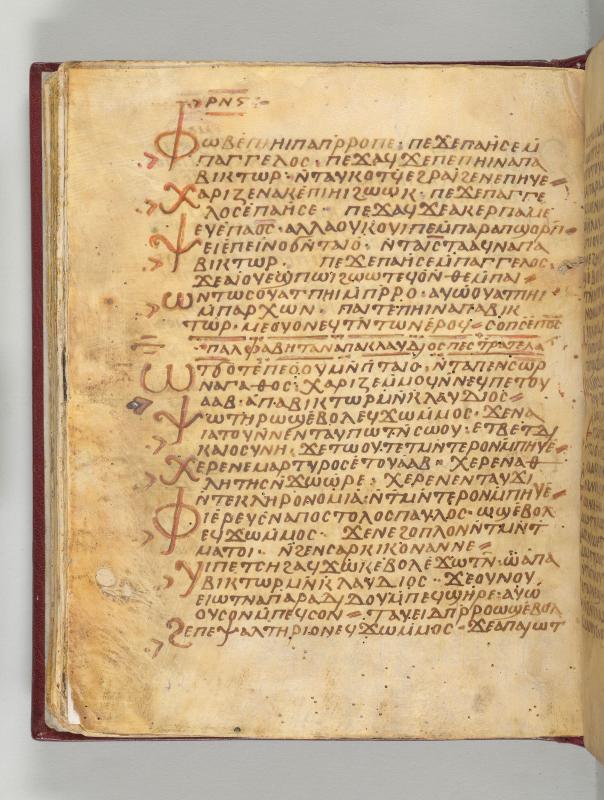 ⲣⲛⲋ
ⲫⲱⲃⲉⲡⲏⲓⲡⲁⲡⲣ̄ⲣⲟⲡⲉ· ⲡⲉϫⲉⲡⲁⲏⲥⲉⲙ̄
ⲡⲁⲅⲅⲉⲗⲟⲥ· ⲡⲉϫⲁϥϫⲉⲡⲉⲡⲏⲓⲛⲁⲡⲁ
ⲃⲓⲕⲧⲱⲣ· ⲛ̄ⲧⲁⲩⲕⲟⲧϥⲉϩⲣⲁⲓϩⲉⲛⲉⲡⲏⲩⲉ
ⲭⲁⲣⲓⲍⲉⲛⲁⲕⲉ̄ⲡⲓⲏⲓϩⲱⲱⲕ· ⲡⲉϫⲉⲡⲁⲅⲅⲉ
ⲗⲟⲥⲉ̄ⲡⲁⲏⲥⲉ· ⲡⲉϫⲁϥϫⲉⲁⲕⲉⲣⲡⲁⲙⲉ
ⲉⲩⲉ̄ⲡⲁⲟ̄ⲥ̄· ⲁⲗⲗⲁⲟⲩⲕⲟⲩⲓⲡⲉⲙ̄ⲡⲁⲣⲁⲡϣⲟⲣⲡ
ⲯⲉⲓⲉ̄ⲡⲉⲓⲛⲟϭⲛ̄ⲧⲁⲓⲟ· ⲛ̄ⲧⲁⲓ̄ⲥ̄ⲧⲁⲁϥⲛⲁⲡⲁ
ⲃⲓⲕⲧⲱⲣ· ⲡⲉϫⲉⲡⲁⲏⲥⲉⲙ̄ⲡⲁⲅⲅⲉⲗⲟⲥ·
ϫⲉⲁⲓⲟⲩⲉϣ̄ⲡⲱⲓϩⲱⲱⲧⲉϥⲟ̄ⲛ̄· ⲑⲉⲙ̄ⲡⲁⲓ
ⲱⲛⲧⲱⲥⲟⲩⲁⲧⲡⲏⲓⲙ̄ⲡⲣ̄ⲣⲟ· ⲁⲩⲱⲟⲩⲁⲧⲡⲏⲓ
ⲙ̄ⲡⲁⲣⲭⲱⲛ· ⲡⲁⲓⲡⲉⲡⲏⲓⲛⲁⲡⲁⲃⲓⲕ
ⲧⲱⲣ·
ⲱⲧⲟⲧⲉ̄ⲡⲉⲟⲟⲩⲙⲛ̄ⲡⲧⲁⲓⲟ· ⲛ̄ⲧⲁⲡⲉⲛⲥⲱⲣ
ⲛⲁⲅⲁⲑⲟⲥ· ⲭⲁⲣⲓⲍⲉⲙ̄ⲙⲟϥⲛ̄ⲛⲉϥⲡⲉⲧⲟⲩ
ⲁⲁⲃ· ⲁⲡⲁⲃⲓⲕⲧⲱⲣⲙⲛ̄ⲕⲗⲁⲩⲇⲓⲟⲥ
ⲯⲱⲧⲏⲣⲱϣⲉ̄ⲃⲟⲗⲉϥϫⲱⲙ̄ⲙⲟⲥ· ϫⲉⲛⲁ
ⲓⲁⲧⲟⲩⲛ̄ⲛⲉⲛⲧⲁⲩⲡⲱⲧⲛ̄ⲥⲱⲟⲩ· ⲉⲧⲃⲉⲧⲇⲓ
ⲕⲁⲓⲟⲥⲩⲛⲏ· ϫⲉⲧⲱⲟⲩⲧⲉⲧⲙⲛ̄ⲧⲉⲣⲟⲛⲙ̄ⲡⲏⲩⲉ
ⲭⲉⲣⲉⲛⲉⲙⲁⲣⲧⲩⲣⲟⲥⲉ̄ⲧⲟⲩⲁⲁⲃ· ⲭⲉⲣⲉⲛⲁⲑ
ⲗⲏⲧⲏⲥⲛ̄ϫⲱⲱⲣⲉ· ⲭⲉⲣⲉⲛⲉⲛⲧⲁⲩϫⲓ
ⲛ̄ⲧⲉⲕⲗⲏⲣⲟⲛⲟⲙⲓⲁ· ⲛ̄ⲧⲙⲛ̄ⲧⲉⲣⲟⲛⲙ̄ⲡⲏⲩⲉ
ⲫⲓⲉⲣⲉⲩⲥⲛⲁⲡⲟⲥⲧⲟⲗⲟⲥⲡⲁⲩⲗⲟⲥ· ⲱϣⲉ̄ⲃⲟⲗ
ⲉϥϫⲱⲙ̄ⲙⲟⲥ· ϫⲉⲛⲉϩⲟⲡⲗⲟⲛⲛ̄ⲧⲙⲛ̄ⲧ
ⲙⲁⲧⲟⲓ· ⲛ̄ϩⲉⲛⲥⲁⲣⲕⲓⲕⲟⲛⲁⲛⲛⲉ
ⲩⲓⲡⲉⲧⲥⲏϩⲁϥϫⲱⲕⲉ̄ⲃⲟⲗⲉ̄ϫⲱⲧⲛ̄· ⲱ̄ⲁⲡⲁ
ⲃⲓⲕⲧⲱⲣⲙⲛ̄ⲕⲗⲁⲩⲇⲓⲟⲥ· ϫⲉⲟⲩⲛⲟⲩ
ⲉⲓⲱⲧⲛⲁⲡⲁⲣⲁⲇⲓⲇⲟⲩⲙ̄ⲡⲉϥϣⲏⲣⲉ· ⲁⲩⲱ
ⲟⲩⲥⲟⲛⲙ̄ⲡⲉϥⲥⲟⲛ ⲇⲁⲩⲉⲓⲇⲡⲣ̄ⲣⲟⲱϣⲉ̄ⲃⲟⲗ
ϩⲉⲡⲉⲯⲁⲗⲧⲏⲣⲓⲟⲛⲉϥϫⲱⲙ̄ⲙⲟⲥ· ϫⲉⲁⲡⲁⲓⲱⲧ